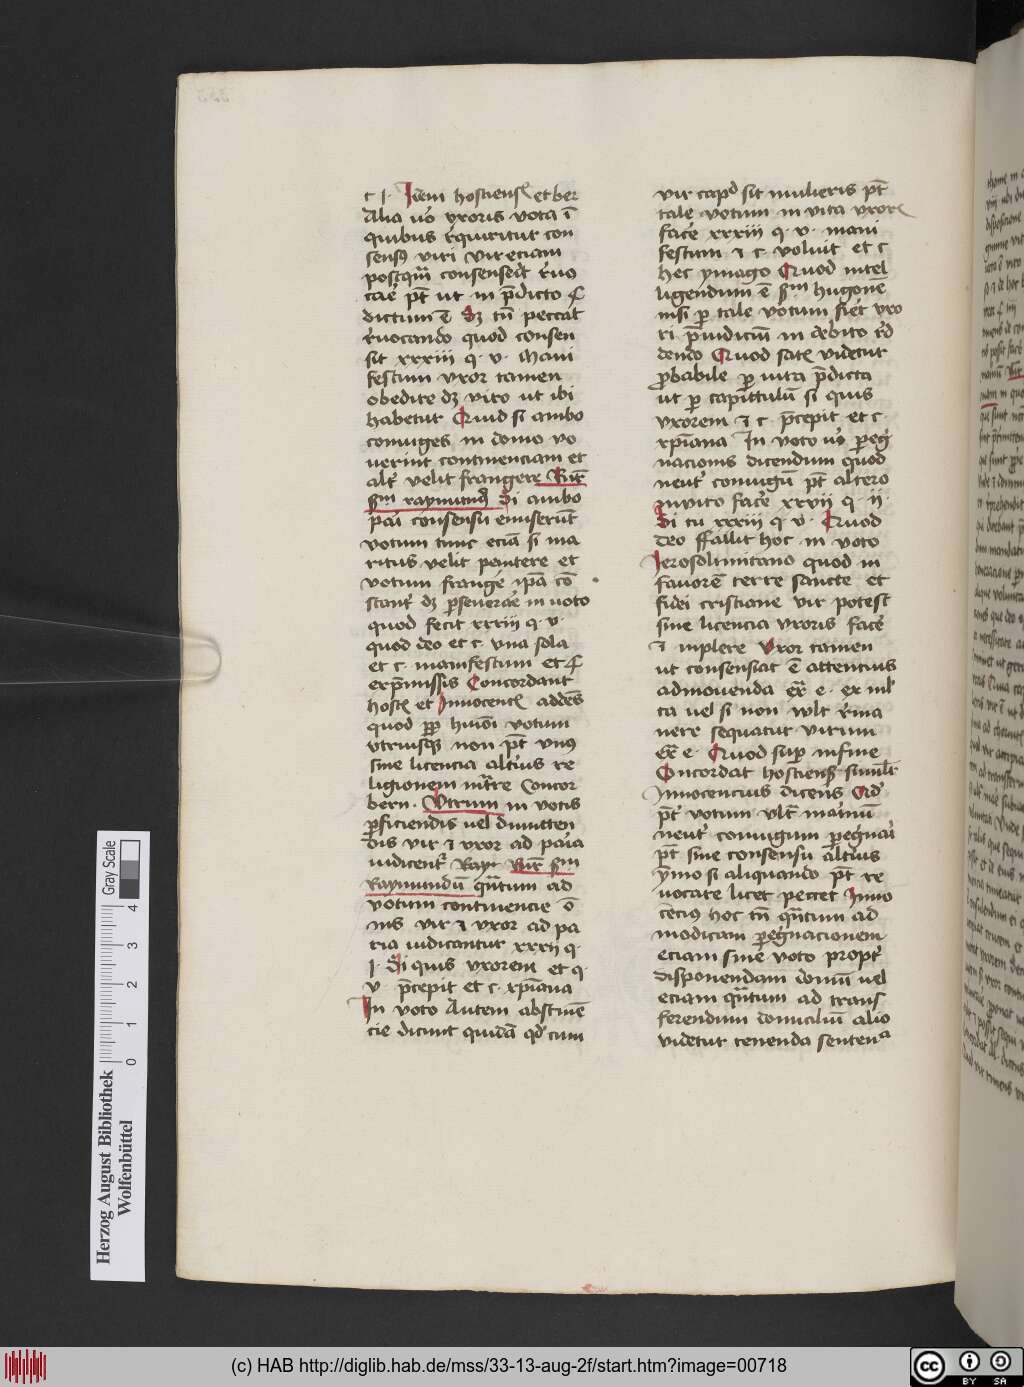 c i · Idem hostiens͛ et ber
Alia uo̅ vxoris vota i̅
quibus r̅quiritur con
sens9 viri vir eciam
postq̅m consenserit r̅uo
care pt̅ ut in p̅dicto §
dictum e̅ Sꝫ tn̅ peccat
r̅uocando quod consen
sit xxxiii q · v · Mani
festum vxor tamen
obedire dꝫ viro ut ibi
habetur Quid si ambo
coniuges in domo vo
uerint continenciam et
alt̅ velit frangere Rn̅r
sm̅ raymund9 Si ambo
pari consensu emiseru̅t
votum tunc ecia̅ si ma
ritus velit penitere et
votum frange̅ ip̅a co̅
stant̅ dꝫ p̱seuera̅e in uoto
quod fecit xxxiii q · v ·
quod deo et c · vna sola
et c · manifestum et §
ex p̅missis Concordant
host͛ et Innocent͛ adde̅s
quod pp̱ hui9mo̅i votum
vtriusqꝫ non pt̅ vn9
sine licencia alt̅ius re
ligionem intr̅re Concor
bern · Vtrum in votis
p̱ficiendis uel dimitten
dis vir ⁊ vxor ad paria
iudicent̅ Ray Rn̅r sm̅
Raymundu̅ qn̅tum ad
votum continencie o̅
nis vir ⁊ vxor ad pa
ria iudicantur xxxii q ·
i · Si quis vxorem et q ·
v · p̅cepit et c · xp̅iana
In voto Autem abstine̅
cie dicunt quida̅ qd̅ cum
vir cap͛ sit mulieris pt̅
tale votum in vita vxor͛
face̅ xxxiii q · v · mani
festum ⁊ c · voluit et c
hec ymago Quod intel
ligendum e̅ sm̅ hugone̅
nisi p̱ tale votum fiet vxo
ri p̅iudiciu̅ in debito r̅d
dendo Quod sat͛ videtur
p̱babile p̱ iura p̅dicta
ut p̱ capittulu̅ si quis
vxorem ⁊ c · p̅cepit et c ·
xp̅iana In voto uo̅ p̱eg̅
nacionis dicendum quod
neut̅ coniugu̅ pt̅ altero
inuito face̅ xxvii q · ii ·
Si tu xxxiii q · v · Quod
deo ffallit hoc in voto
Ierosolimitano quod in
fauore̅ terre sancte et
fidei cristiane vir potest
sine licencia vxoris face̅
⁊ inplere Vxor tamen
ut consensiat e̅ attencius
admouenda ex̅ e · ex ml̅
ta uel si non wlt r̅ma
nere sequatur virum
ex̅ e · Quod sup̱ in fine
Concordat hostiens͛ simil͛r
Innocencius dicens Qd̅
pt̅ votum vlt̅ mar̅inu̅
neut̅ coniugum p̱egnar̅i
pt̅ sine consensu alt̅ius
ymo si aliquando pt̅ re
uocare licet peccet Inno
cenci9 hoc tn̅ qn̅tum ad
modicam p̱eg̅nacionem
eciam sine voto propt̅
disponendam domu̅ uel
eciam qn̅tum ad trans
ferendum domiciliu̅ alio
videtur tenenda senten͛a
Gray Scale
0 1 2 3 4
Herzog August Bibliothek
Wolfenbüttel
(c) HAB http://diglib.hab.de/mss/33-13-aug-2f/start.htm?image=00718
cc BY SA